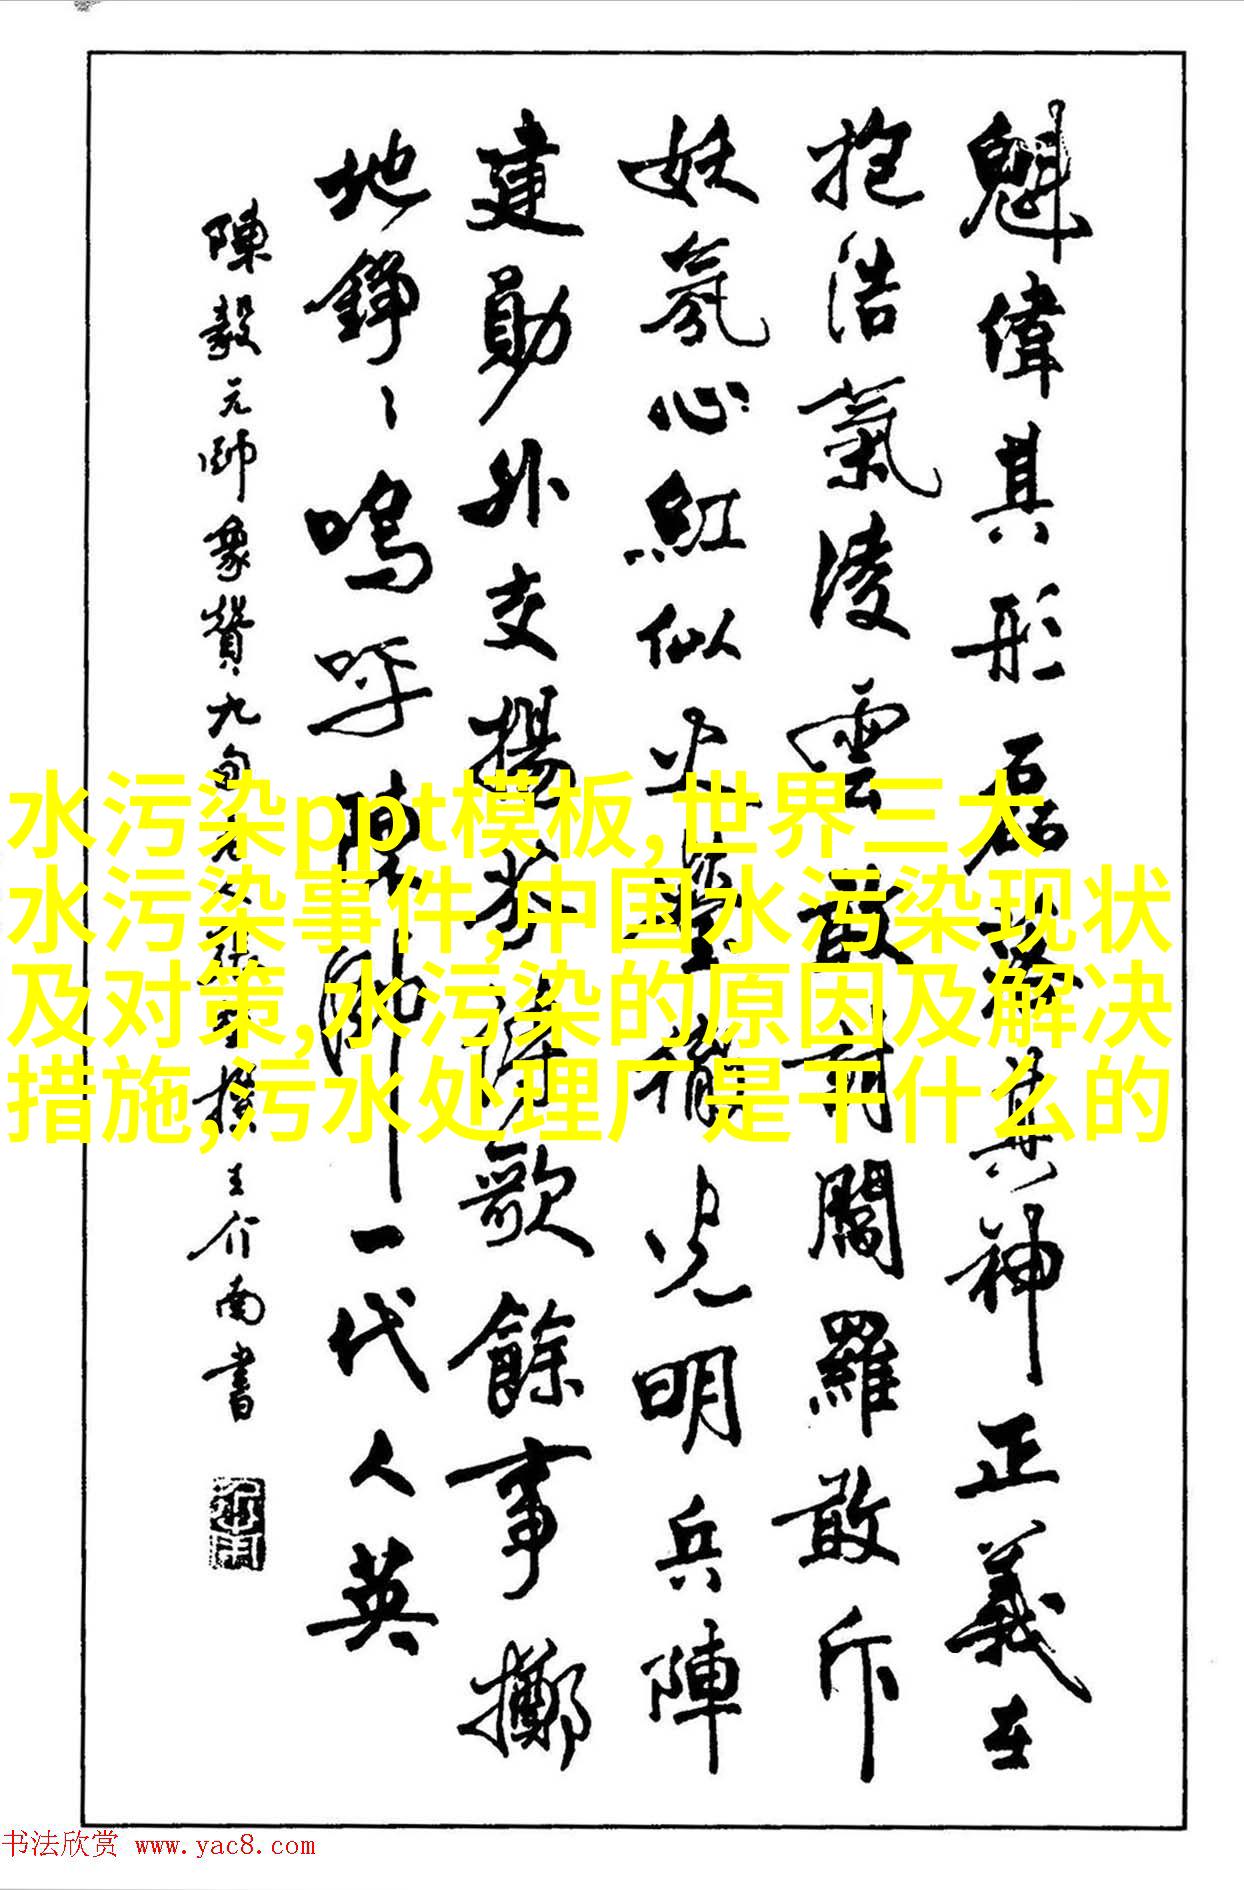 魁偉其形磊落其神正義在
抱浩氣凌雲敢討閻羅敢斥
妖氛心紅似火堅貞光明兵陣
建勛外交揚芬詩歌餘事擲
地錚〻嗚呼陳帥一代人英
陳毅元帥象贊九旬老人撰王介南書
水污染ppt模板,世界三大
水污染事件,中国水污染现状
及对策,水污染的原因及解决
措施,污水处理厂是干什么的
书法欣赏 www.yac8.com